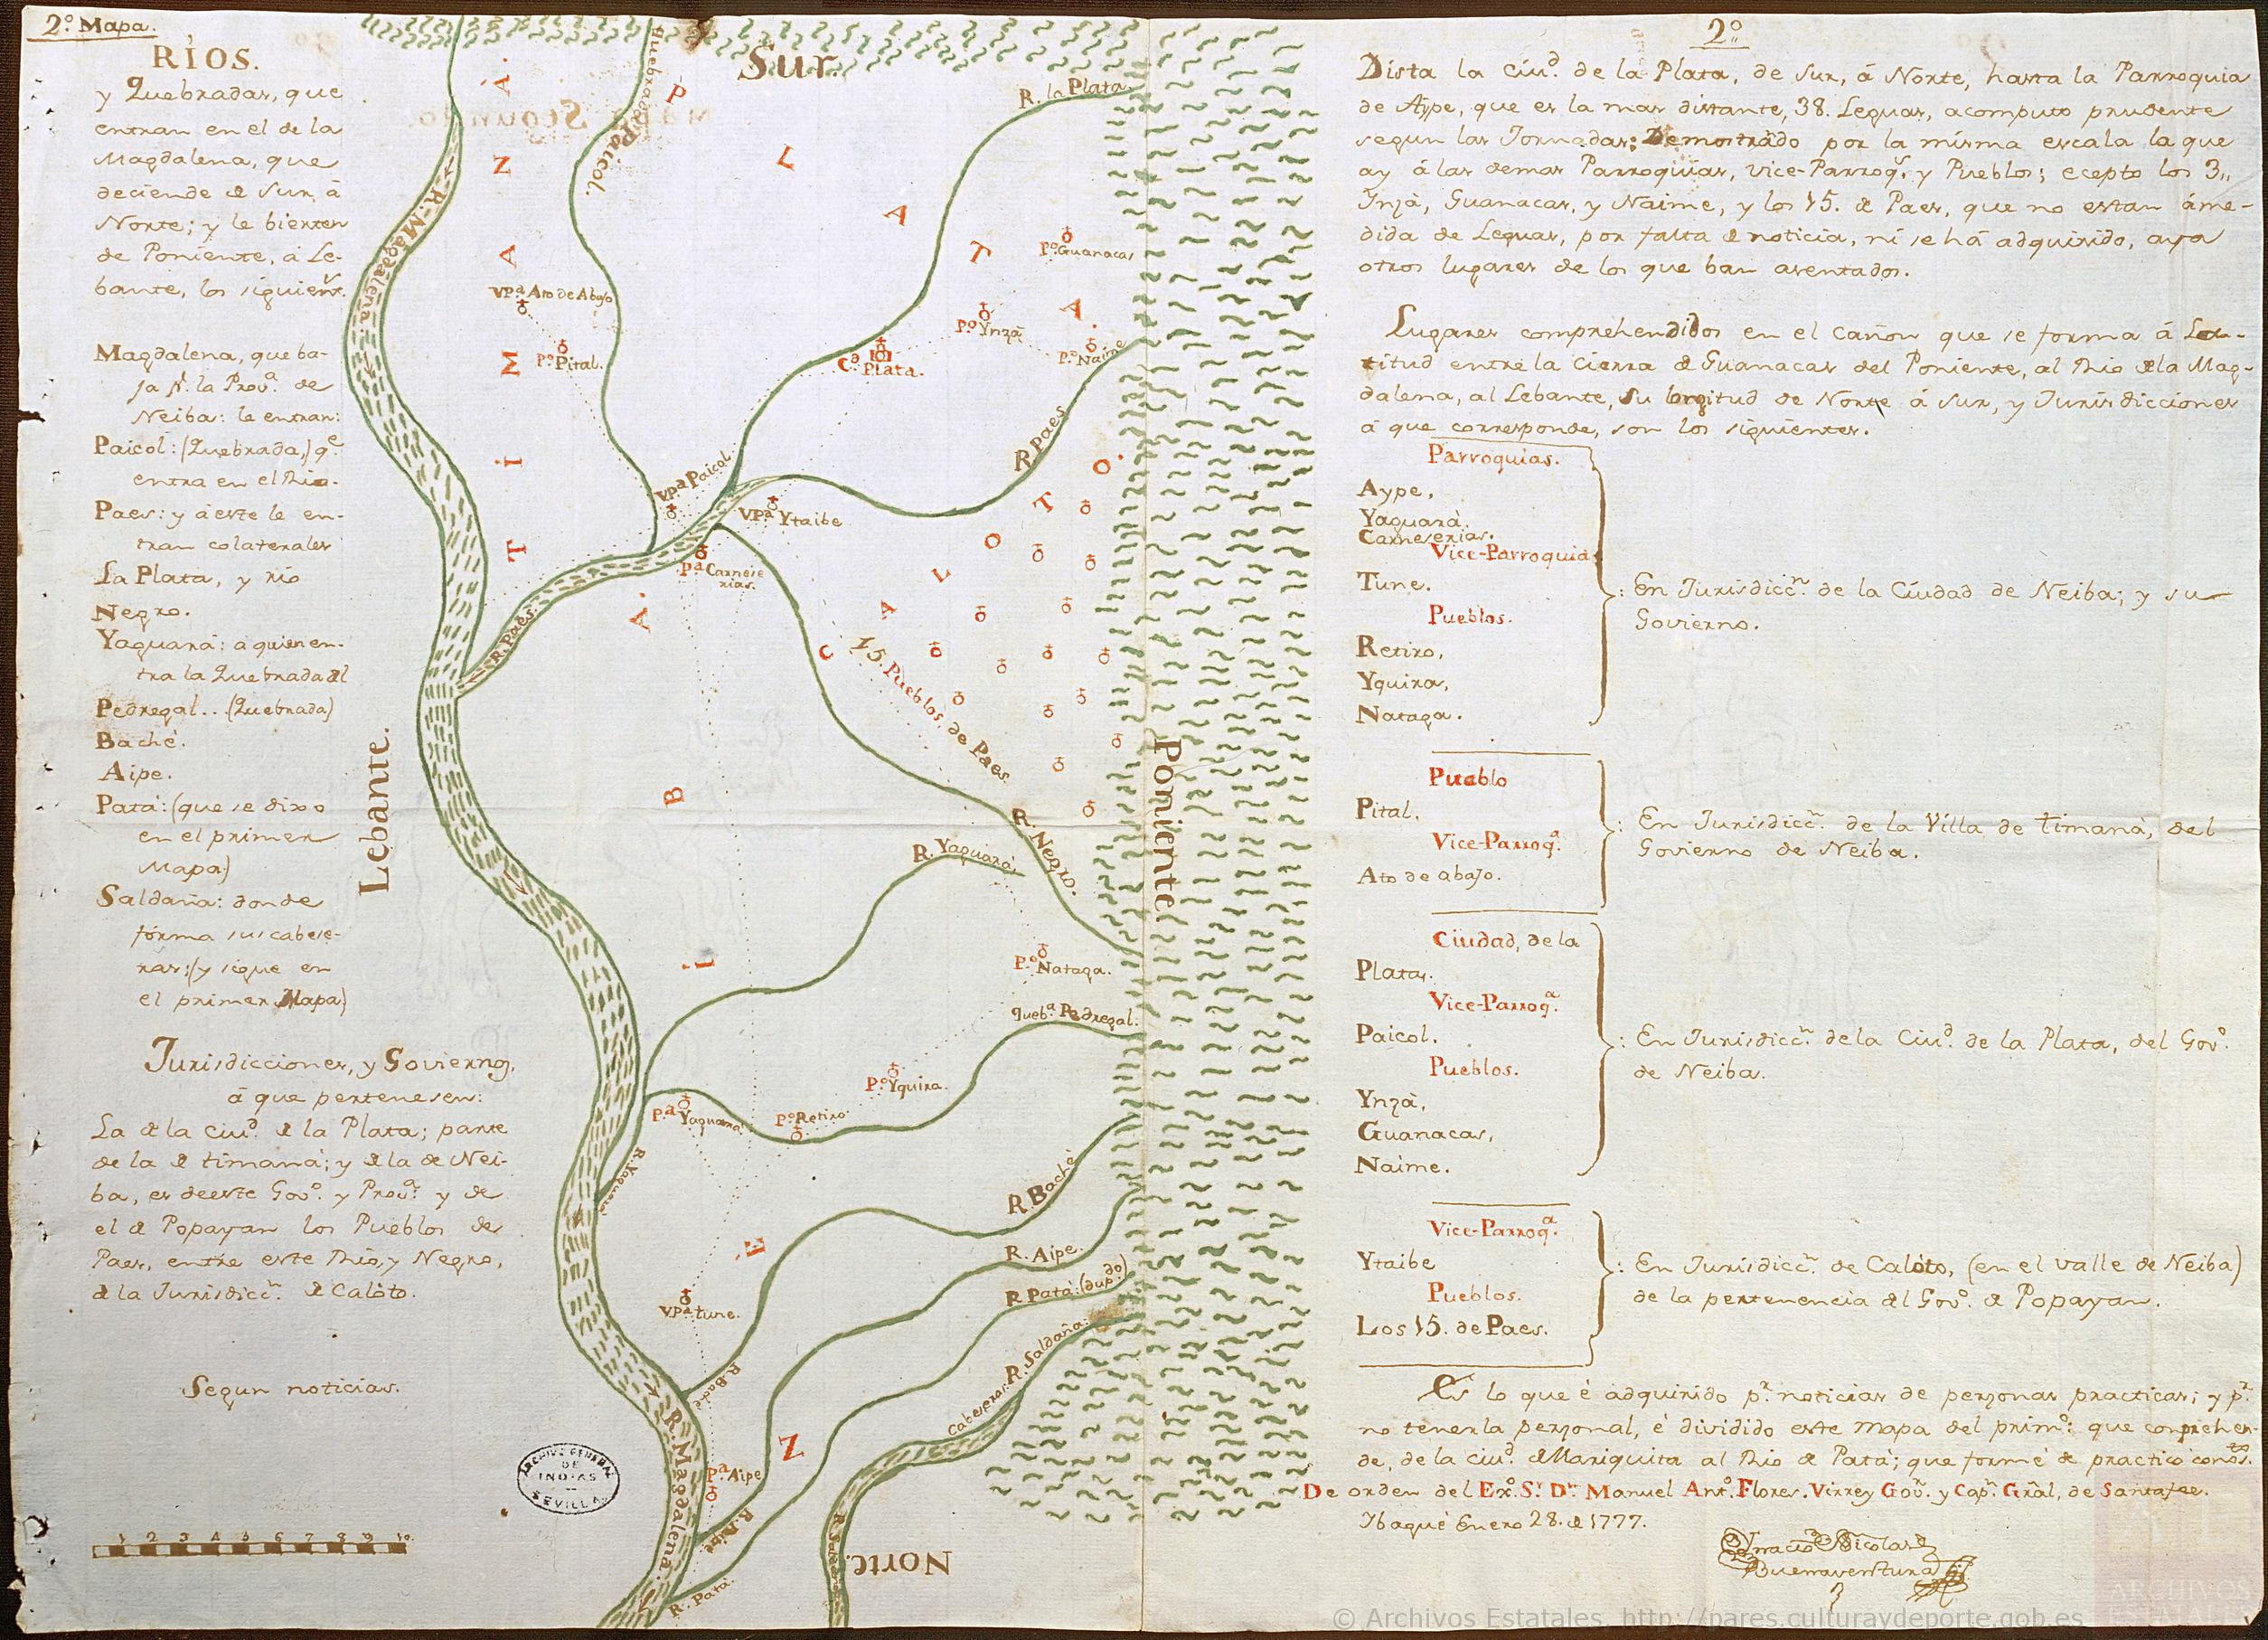 2.º Mapa.
RÍOS.
y Quebradas, que
entran en el de la
Magdalena, que
deciende de Sur, á
Norte; y le bierten
de Poniente, á Le-
bante, los siguient.ˢ
Magdalena, que ba-
ja pʳ. la Prov.ª de
Neiba: le entran:
Paicol: (Quebrada,) q.ᵉ
entra en el Rio.
Paes: y á este le en-
tran colaterales
La Plata, y rio
Negro.
Yaguará: á quien en-
tra la Quebrada del
Pedregal... (Quebrada)
Baché.
Aipe.
Patá: (que se dixo
en el primer
Mapa)
Saldaña: donde
fórma sus cabese-
ras: (y sigue en
el primer Mapa)
Jurisdicciones, y Goviernos,
á que pertenesen:
La de la ciu.ᵈ de la Plata; parte
de la de timaná; y de la de Nei-
ba, es de este Gov.º y Prov.ª y de
el de Popayan los Pueblos de
Paes, entre este Rio, y Negro,
de la Jurisdicc.ⁿ de Calóto.
Segun noticias.
ARCHIVO GENERAL
DE
INDIAS
SEVILLA
1 2 3 4 5 6 7 8 9 10
Sur.
Lebante.
Poniente
Norte.
TIMANÁ.
LA PLATA.
CALOTO.
NEIBA.
quebrada Paicol.
R. la Plata
R. Magdalena.
Pº. Guanacas
VPª Ato de Abajo
Pº. Ynzá
Pº. Pital.
Cᵈ. Plata.
Pº. Naime
R. Paes
VPª Paicol
VPª Ytaibe
Pª Carnese
rias.
R. Paes.
15. Pueblos, de Paes.
R. Negro.
R. Yaguará
Pº. Nataga.
queb.ª Pedregal.
Pº. Yquira.
Pª Yaguará
Pº. Retiro.
R. Yaguará
R Baché
R. Aipe.
R Patá: (dup.ᵈᵒ)
VPª tune.
R. Saldaña:
Cabeseras.
R. Baché
Pª. Aipe
R. Magdalena.
R. Aipe.
R. Patá.
R. Saldaña.
2º
Dista la ciu.ᵈ de la Plata, de Sur, á Norte, hasta la Parroquia
de Aype, que es la mas distante, 38. Leguas, a computo prudente
segun las Jornadas: Demostrado por la misma escala la que
ay á las demas Parroquias, vice-Parroq.ˢ y Pueblos; ecepto los 3,,
Ynzá, Guanacas, y Naime, y los 15. de Paes, que no estan áme-
dida de Leguas, por falta de noticia, ni se há adquirido, aya
otros lugares de los que ban asentados.
Lugares comprehendidos en el cañon que se forma á La-
titud entre la cierra de Guanacas del Poniente, al Rio de la Mag-
dalena, al Lebante, su longitud de Norte á Sur, y Jurisdicciones
á que corresponde, son los siguientes.
Parroquias.
Aype,
Yaguará.
Carneserias.
Vice-Parroquia
Tune.
Pueblos.
Retiro,
Yquira,
Nataga.
: En Jurisdicc.ⁿ de la Ciudad de Neiba; y su
Govierno.
Pueblo
Pital.
Vice-Parroq.ª
Ato de abajo.
: En Jurisdicc.ⁿ de la Villa de timaná, del
Govierno de Neiba.
Ciudad, de la
Plata.
Vice-Parroq.ª
Paicol.
Pueblos.
Ynzá,
Guanacas,
Naime.
: En Jurisdicc.ⁿ de la Ciu.ᵈ de la Plata, del Gov.º
de Neiba.
Vice-Parroq.ª
Ytaibe
Pueblos.
Los 15. de Paes.
: En Jurisdicc.ⁿ de Calóto, (en el valle de Neiba)
de la pertenencia del Gov.º de Popayan.
Es lo que é adquirido pʳ. noticias de perzonas practicas; y pʳ.
no tenerla perzonal, é dividido este Mapa del prim.º: que conprehen-
de, de la ciu.ᵈ de Mariquita al Rio de Patá; que formé de practico conos.ᵗᵒ
De orden del Ex.º S.ʳ D.ⁿ Manuel Ant.º Flores. Virrey Gov.ʳ y Cap.ⁿ Gral, de Santafee.
Ibagué Enero 28. de 1777.
Ignacio Nicolas
Buenaventura
© Archivos Estatales, http://pares.culturaydeporte.gob.es
ARCHIVOS
ESTATALES